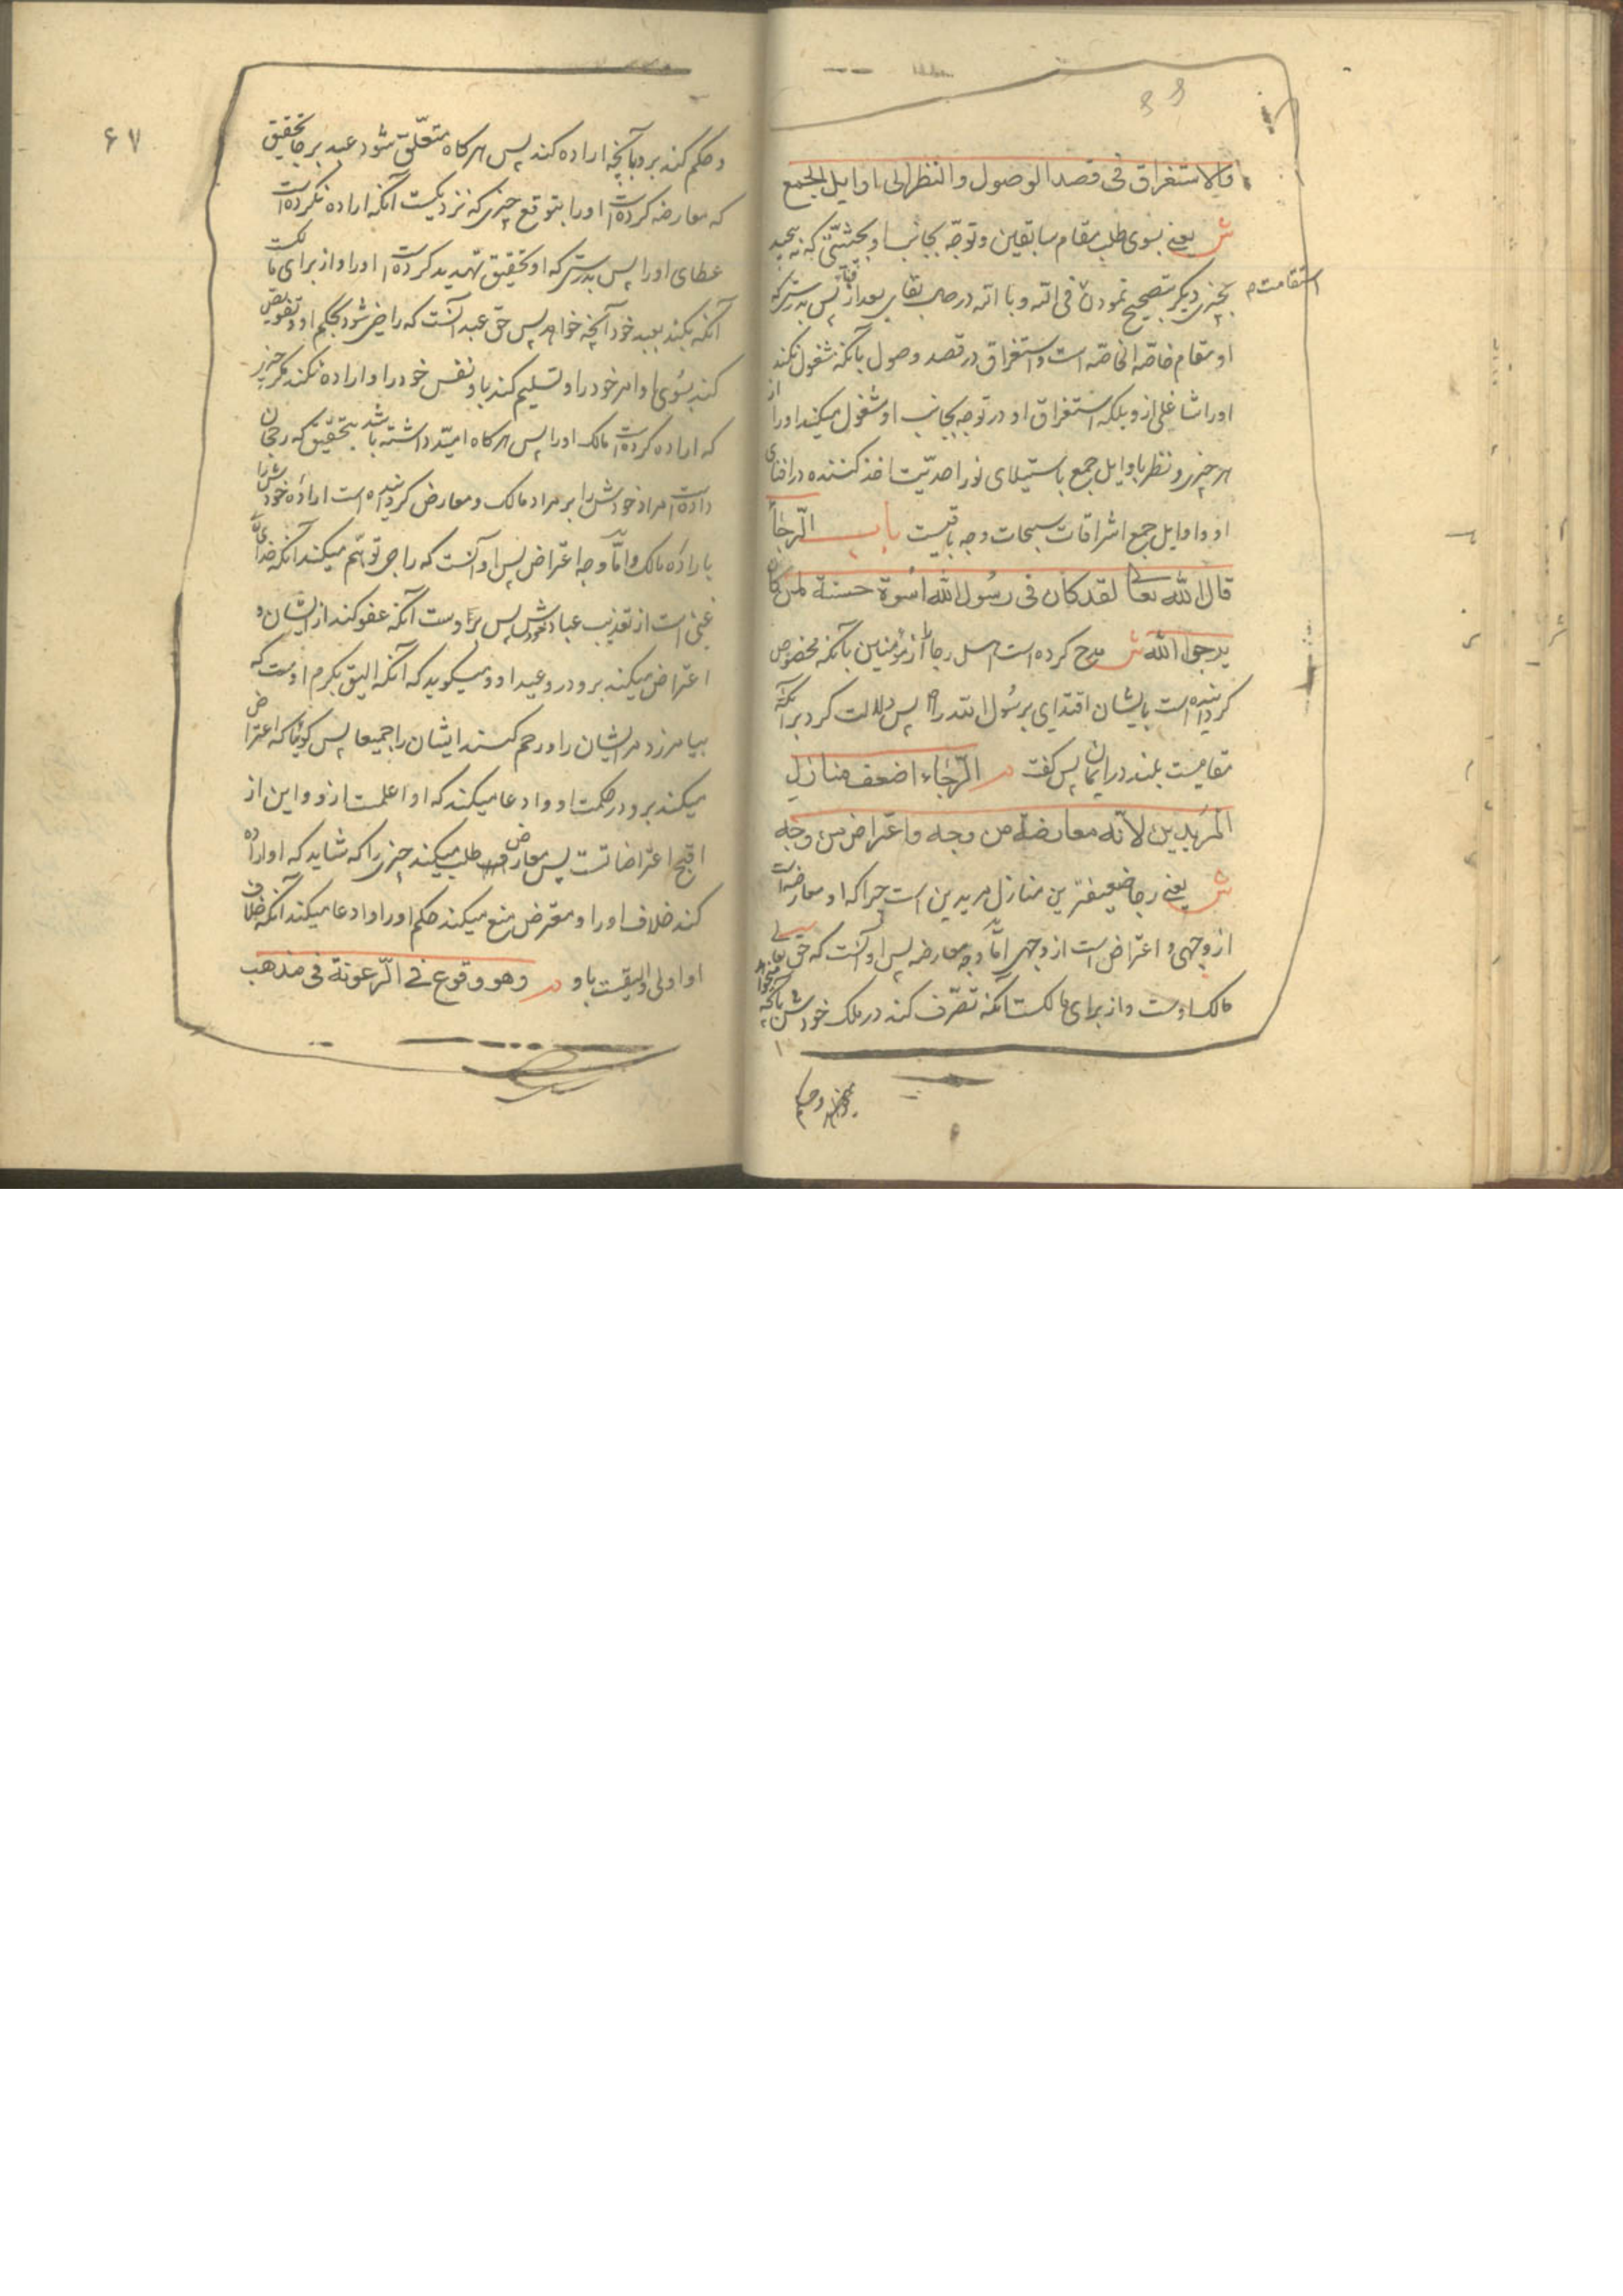 والاستغراق فی قصد الوصول والنظر الی اوایل الجمع
ش یعنی بسوی طلب مقام سابقین و توجّه بجانب او بحیثیّتی که نه پیچد
بچیزی دیگر بتصحیح نمودن فی الله و بالله درحال بقای بعد از فنا پس بدرستیکه
استقامت م
او مقام خاصّه الخاصّه است و استغراق در قصد وصول بآنکه مشغول نکند
او را شاغلی ازو بلکه استغراق او در توجه بجانب او مشغول میکند او را از
هر چیزی و نظر باوایل جمع باستیلای نور احدیّت اخذ کننده در افنای
او و اوایل جمع اشراقات سبحات وجه باقیست باب الرّجاء
قال الله تعالی لقد کان فی رسول الله اسوة حسنة لمن کان
یرجوا الله ش مدح کرده است اهل رجا را از مؤمنین بآنکه مخصوص
کردانیده است بایشان اقتدای برسُول الله را پس دلالت کرد برآنکه
مقامیست بلند در ایمان پس کفت م الرّجاء اضعف منازل
المریدین لانّه معارضة من وجه واعتراض من وجه
ش یعنی رجا ضعیفترین منازل مریدین است چرا که او معارضه است
از وجهی و اعتراض است از وجهی امّا وجه معارضه پس او آنست که حق تعالی
مالک اوست و از برای مالکست آنکه تصرّف کند در ملک خودش بآنچه میخواهد
میخواهد و حکم
۶۷
و حکم کند برو بآنچه اراده کند پس هرکاه متعلّق شود عبد برجا بتحقیق
که معارضه کرده است او را بتوقع چیزی که نزدیکست آنکه اراده نکرده است
عطای او را پس بدرستی که او بتحقیق تهدید کرده است او را و از برای مالکست
آنکه بکند بعبد خود آنچه خواهد پس حق عبد آنست که راضی شود بحکم او و تفویض
کند بسُوی او امر خود را و تسلیم کند باو نفس خود را و اراده نکند مکر چیزی
که اراده کرده است مالک او را پس هرکاه امیّد داشته باشد بتحقیق که رجحان
داده است مراد خودش را بر مراد مالک و معارض کردانیده است اراده خودش را
باراده مالک و امّا وجه اعتراض پس او آنست که راجی توهّم میکند آنکه خدای تعالی
غنی است از تعذیب عباد خودش پس برو اوست آنکه عفو کند از ایشان و
اعتراض میکند برو در وعید او و میکوید که آنکه الیق بکرم اوست که
بیامرزد مر ایشان را و رحم کند ایشان را جمیعا پس کویا که اعتراض
میکند برو در حکمت او و ادعا میکند که او اعلمست ازو و این از
اقبح اعتراضاتست پس معارض طلب میکند چیزی را که شاید که او اراده
کند خلاف او را و معترض منع میکند حکم او را و ادعا میکند آنکه خلاف
او اولی و الیقست باو م وهو وقوع فی الرّعونة فی مذهب